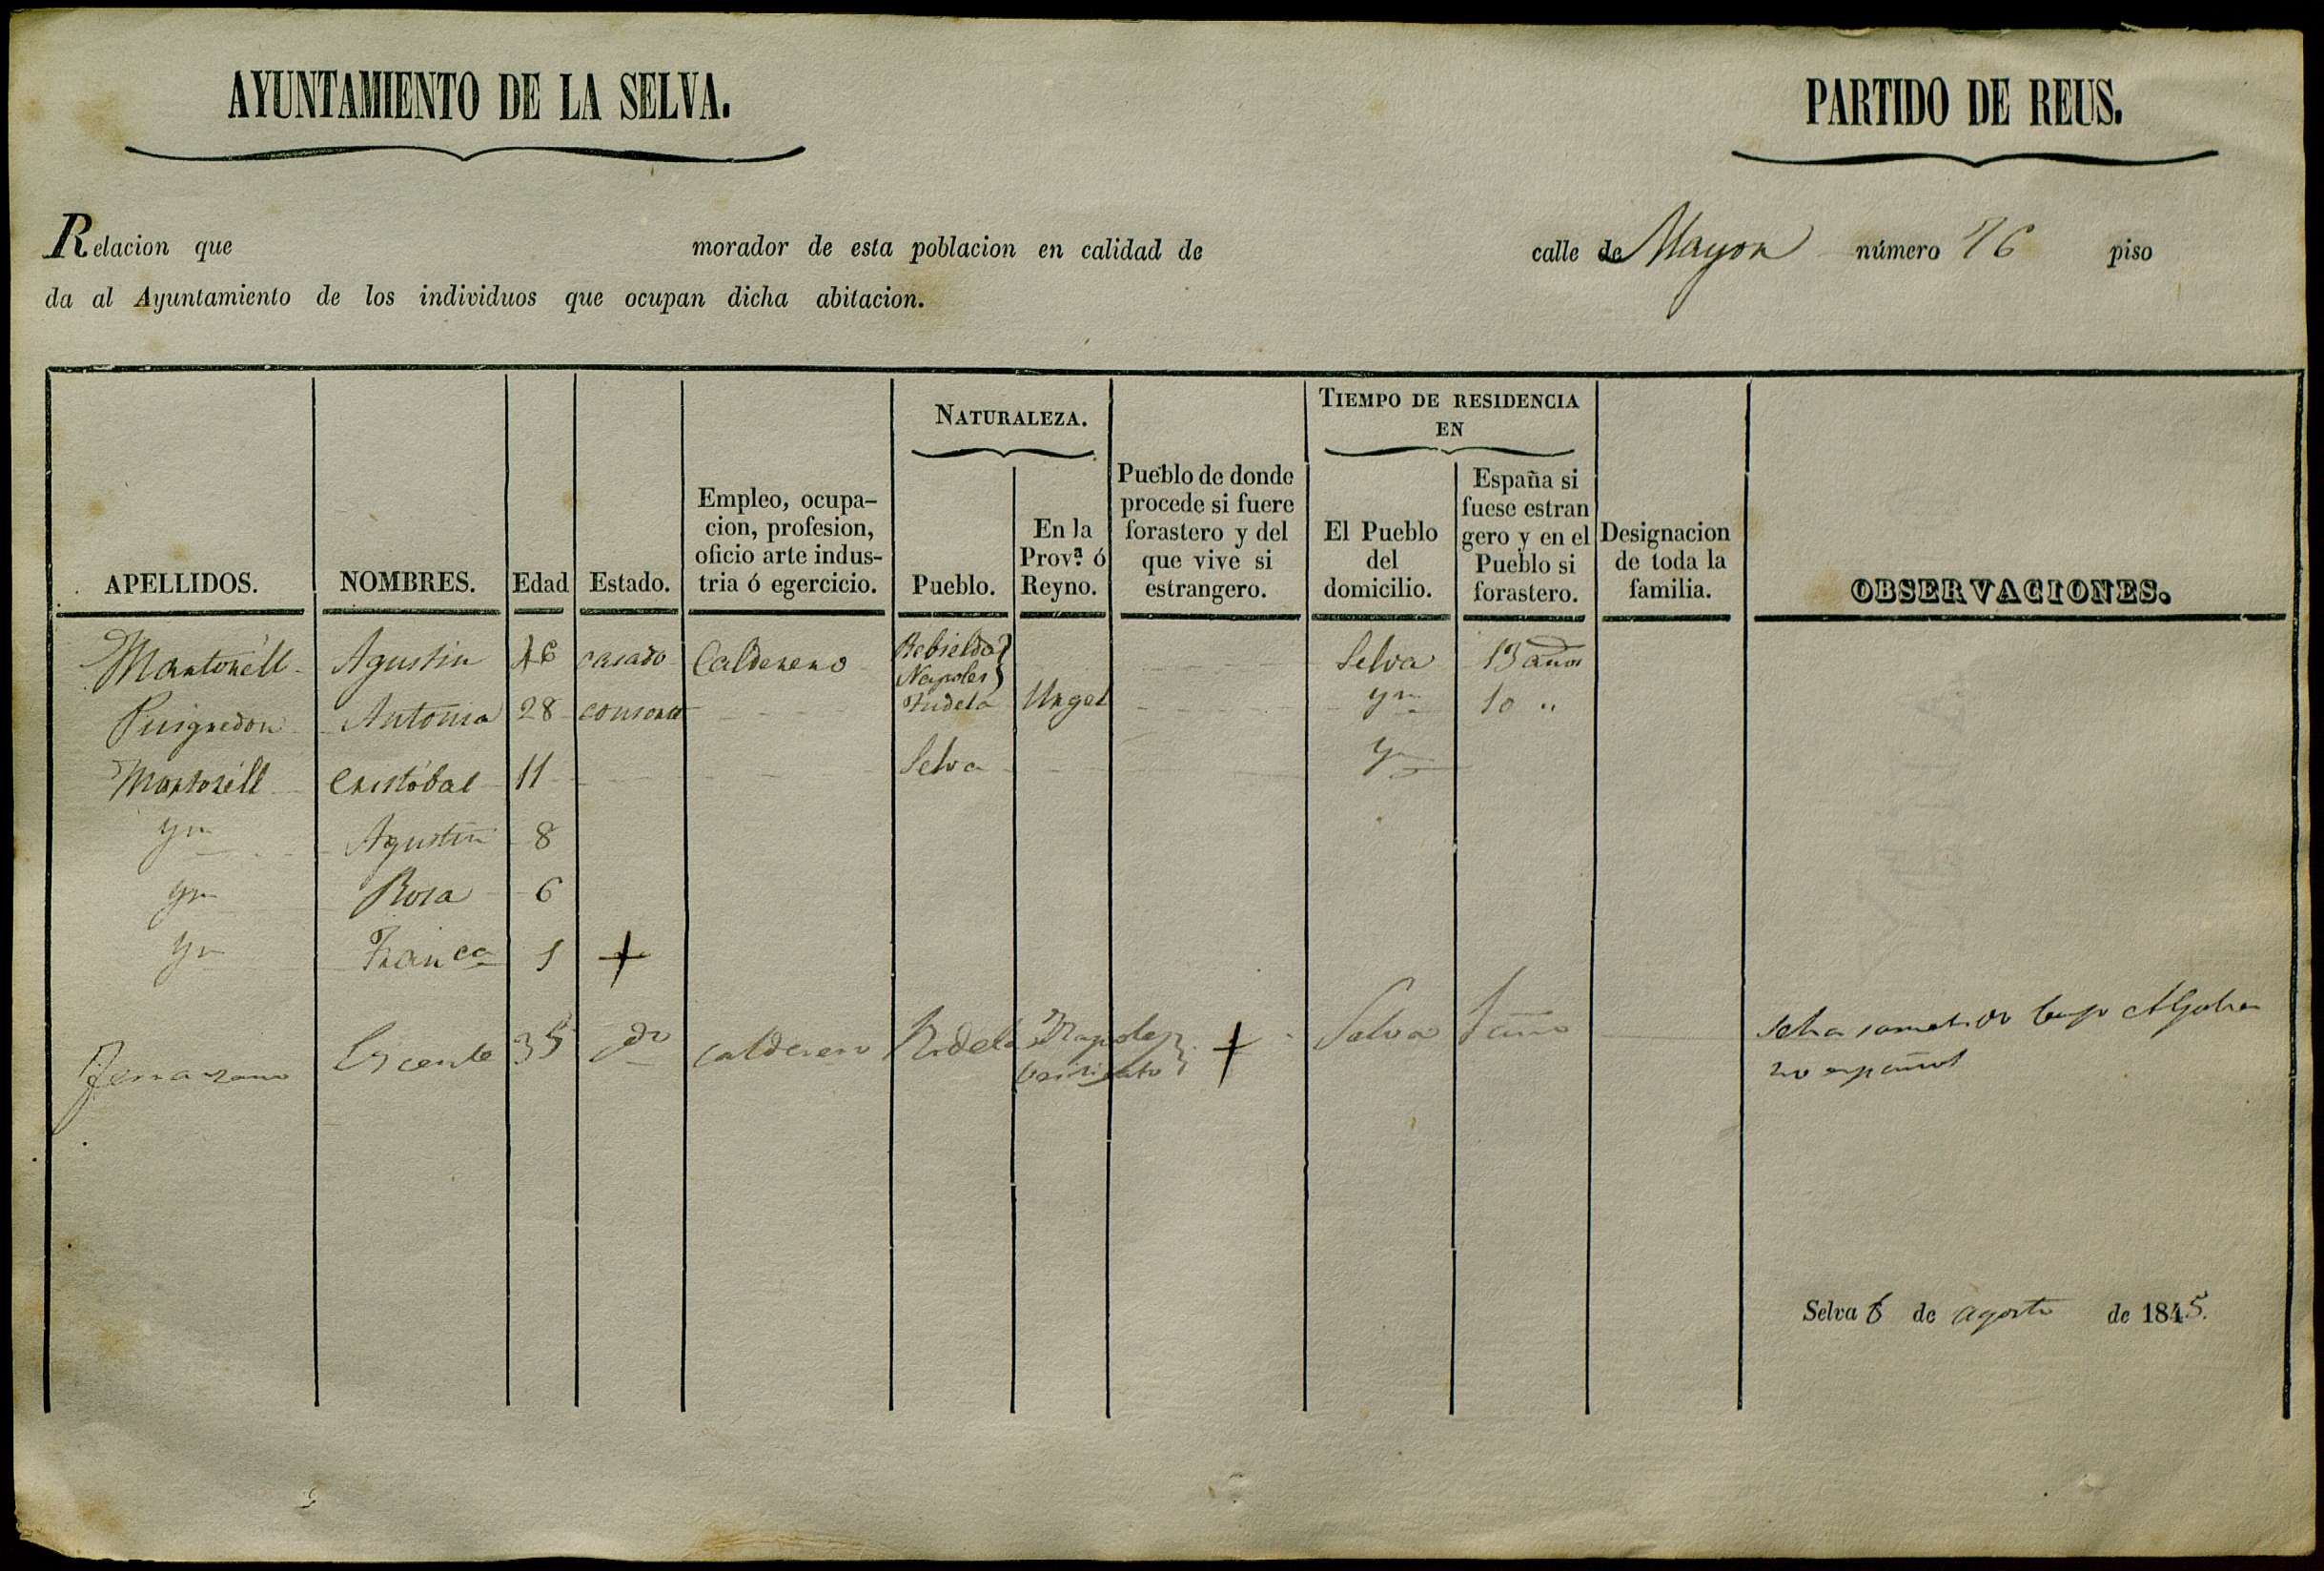 AYUNTAMIENTO DE LA SELVA.
PARTIDO DE REUS.
Relacion que morador de esta poblacion en calidad de calle de Mayor número 76 piso
da al Ayuntamiento de los individuos que ocupan dicha abitacion.
APELLIDOS.
NOMBRES.
Edad
Estado.
Empleo, ocupa-
cion, profesion,
oficio arte indus-
tria ó egercicio.
NATURALEZA.
Pueblo.
En la
Prov.ª ó
Reyno.
Pueblo de donde
procede si fuere
forastero y del
que vive si
estrangero.
TIEMPO DE RESIDENCIA
EN
El Pueblo
del
domicilio.
España si
fuese estran
gero y en el
Pueblo si
forastero.
Designacion
de toda la
familia.
OBSERVACIONES.
Martorell Agustin casado Calderero Napoles Selva 13 años
Antonia 28 consorte Tudela Urgel Yn 10 "
Martorell Cristóbal 11 Selva Yn
Yn Agustin 8
Yn Rosa 6
Yn Fran.ca 1 +
35 calderero Napoles + Selva 1 año
no español
Selva 6 de agosto de 1845.